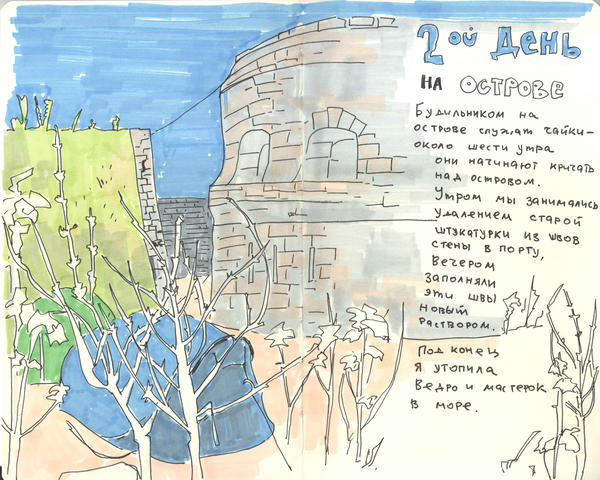 2ой День
на острове
Будильником на
острове служат чайки-
около шести утра
они начинают кричать
над островом.
Утром мы занимались
удалением старой
штукатурки из швов
стены в порту,
Вечером
заполняли
эти швы
новый
раствором.
Под конец
я утопила
ведро и мастерок
в море.